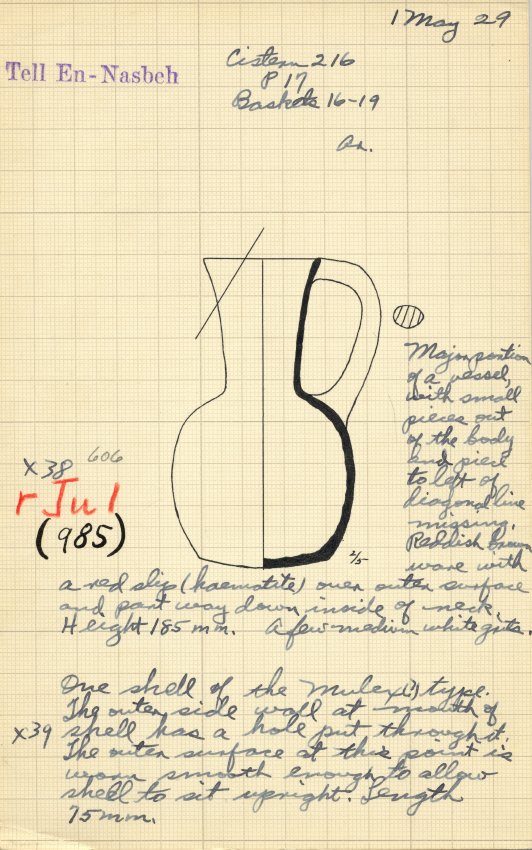 1 May 29
Tell En-Nasbeh
Cistern 216
P 17
Baskets 16-19
An.
Major portion
of a vessel,
with small
pieces out
of the body
and piece
to left of
diagonal line
missing.
Reddish brown
ware with
x38 606
r Ju 1
(985)
2/5
a red slip (haematite) over outer surface
and part way down inside of neck.
Height 185 mm. A few medium white grits.
One shell of the Mulex(?) type.
The outer side wall at mouth of
x39 shell has a hole put through it.
The outer surface at this point is
worn smooth enough to allow
shell to sit upright. Length
75mm.